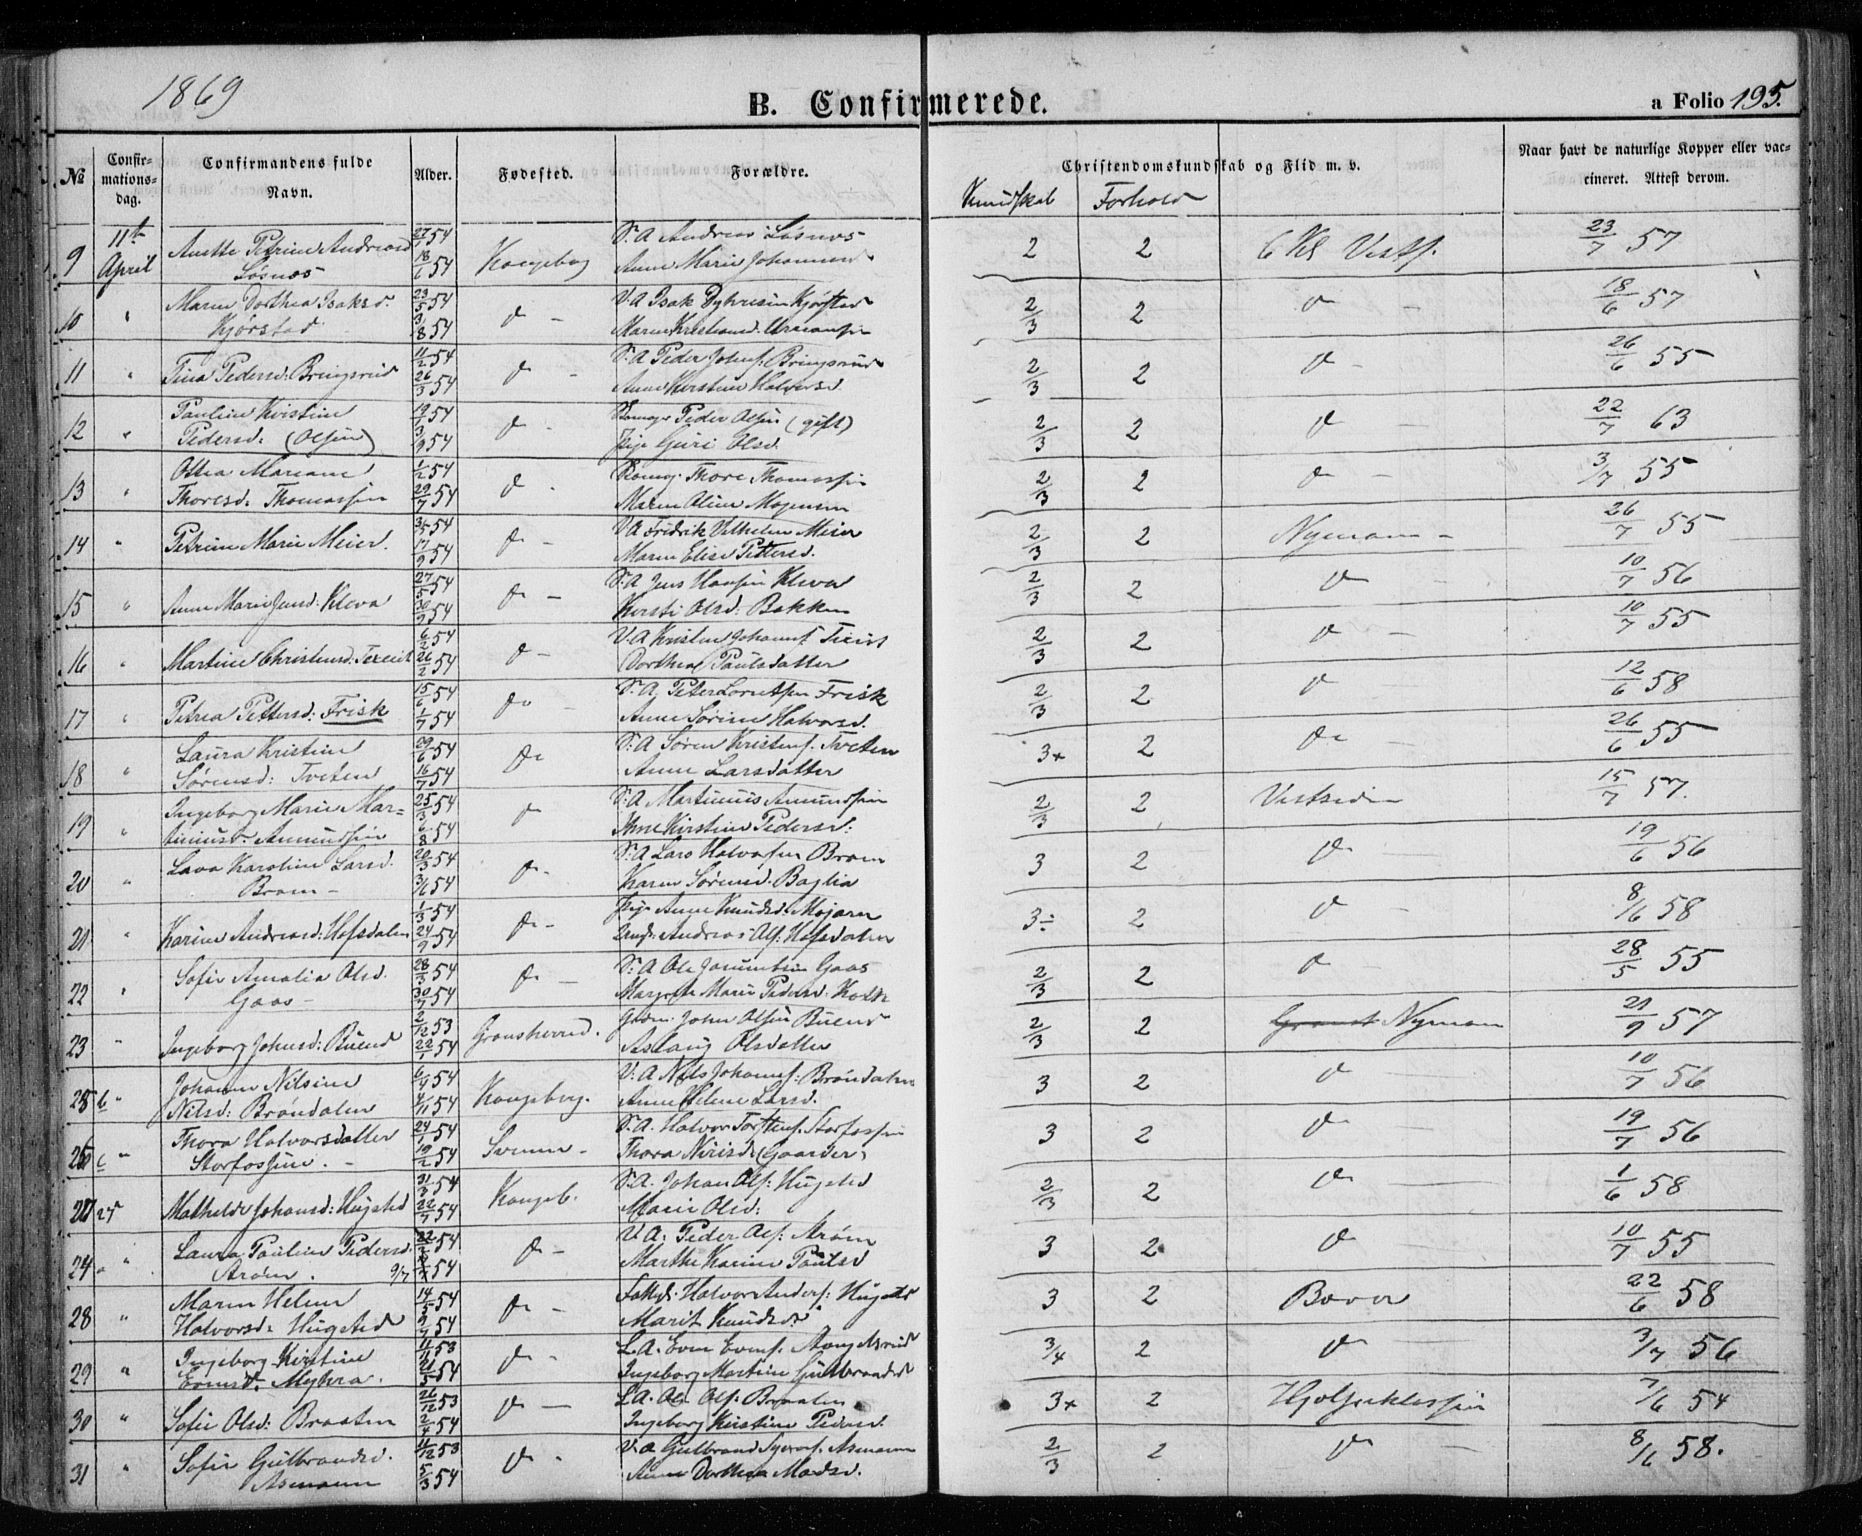 1869
B. Confirmerede.
a Folio 195.
No
Confirmationsdag.
Confirmandens fulde Navn.
Alder.
Fødested.
Forældre.
Christendomskundskab og Flid m. v.
Kundskab Forhold
Naar havt de naturlige Kopper eller vaccineret. Attest derom.
9 11te April Anette Petrine Andreasd Løsnæs 27/1 54 18/6 54 Kongsberg S. A Andreas Løsnæs Anne Marie Johannesd 2 2 6 Kl Vests. 23/7 57
10 " Maren Dorthea Isaksd. Kjørstad 23/5 54 3/8 54 do - V. A Isak Kjørstad Maren Kristiansd. 2/3 2 do - 18/6 57
11 " Tina Pedersd. Bringsrud 11/2 54 26/3 54 do - S. A Peder Johns. Bringsrud Anne Kirstine Halvorsd 2/3 2 do - 26/6 55
12 " Pauline Kristine Pedersd: (Olsen) 19/7 54 3/9 54 do - Peder Olsen (gift) Pige Guri Olsd. 2/3 2 do - 22/7 63
13 " Othea Mariane Thoresd. Thomassen 1/2 54 29/7 54 do - Thore Thomassen Maren Oline Mogensen 2/3 2 do - 3/7 55
14 " Petrine Marie Meier. 54 17/9 54 do - V. A Fredrik Vilhelm Meier Maren Elise Pettersd. 2/3 2 Nymoen - 26/7 55
15 " Anne Marie Jensd: Kleva 27/5 54 30/9 54 do - S. A Jens Hansen Kleva Kirsti Olsd: Bakken 2/3 2 do 10/7 56
16 " Martine Christensd: 6/2 54 26/2 54 do - V. A Kristen Johanns. Dorthea Paulsdatter 2/3 2 do - 10/7 55
17 " Petrea Pettersd: Frisk 15/6 54 1/7 54 do - S. A. Peter Lorentsen Frisk Anne Sørine Halvorsd. 2/3 2 do 12/6 58
18 " Laura Kristine Sørensd: Tveten 29/6 54 16/7 54 do S. A Søren Kristens. Tveten Anne Larsdatter 3+ 2 do - 26/6 55
19 " Ingeborg Marie Martiniusd. Amundsen 25/3 54 6/8 54 do S. A Martinius Amundsen Ane Kirstine Pedersd: 2/3 2 Vestsiden 15/7 57.
20 " Lava Karoline Larsd. Bram - 20/3 54 3/6 54 do - S. A Lars Halvorsen Bram Karen Sørensd. Baglia 3 2 do - 19/6 56
21 " Karine Andreasd: Hofsdalen 1/3 54 24/9 54 do - Pige Anne Knudsd. Mojaren Andreas Ols: Hofsdalen 3÷ 2 do - 8/6 58
22 " Sofie Amalia Olsd. Gaas - 28/3 54 30/7 54 do - S. A Ole Gaas Margrete Marie Pedersd. 2/3 2 do 28/5 55
23 " Ingeborg Johnsd: Buend 2/12 53 22/1 54 Gransherred. John Olsen Buend Aslaug Olsdatter 2/3 2 Nymoen 21/9 57
25 6 " Johanne Nilsine Nilsd: Brøndalen 6/4 54 4/11 54 Kongsberg. V. A Nils Johanns: Brøndalen Anne Helene Larsd. 3 2 do 10/7 56
26 6 " Thora Halvorsdatter Storfossen. - 24/1 54 19/2 54 Svenne - S. A. Halvor Torstens. Storfossen Thora Nirisd. (Gaarder) 3 2 do 19/7 56
27 25 Mathilde Johansd: Hugsted 31/3 54 22/7 54 Kongsb. S. A. Johan Ols: Hugsted Marie Olsd: 2/3 2 do - 1/6 58
24 " Laura Pauline Pedersd. Arøm. 9/7 22/2 54 54 do - V. A: Peder Ols: Arøm Marthe Karine Paulsd 3 2 do 10/7 55
28 " Maren Helene Halvorsd. Hugsted 14/5 54 9/7 54 do - Halvor Anders: Hugsted Marit Knudsd. 3 2 Bæver 22/6 58
29 " Ingeborg Kirstine Evensd. Myhra. 11/11 53 21/5 54 do - L. A. Even Evens. Ingeborg Martine Gulbrandsd 3/4 2 do 3/7 56
30 " Sofie Olsd: Braaten 26/12 53 2/4 54 do - L. A. Ole Ols. Braaten Ingeborg Kirstine Pedersd. 3+ 2 Hjælpeklassen 7/6 54
31 " Sofie Gulbrandsd. Asmann 11/12 53 5/3 54 do - V. A Gulbrand Asmann Anne Dorthea Madsd. 2/3 2 do - 8/6 58.